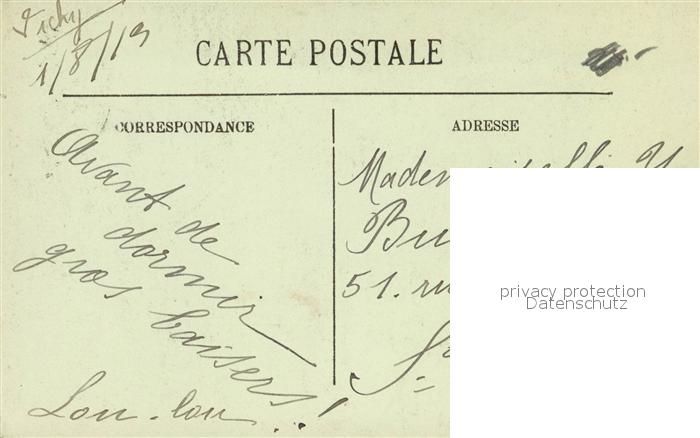 Vichy
1/8/19
CARTE POSTALE
CORRESPONDANCE
Avant de
dormir
gros baisers..!
Lou-lou
ADRESSE
Mademoiselle
51. ru
privacy protection
Datenschutz